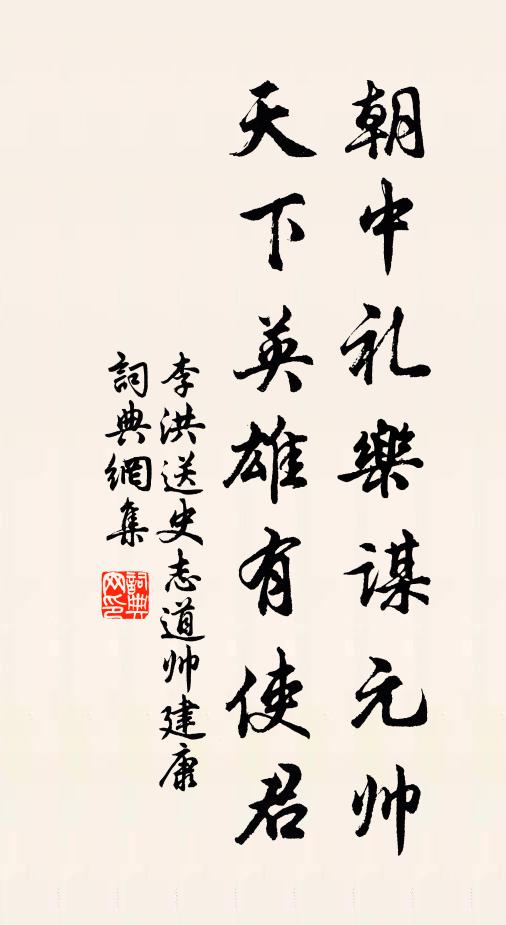 朝中礼樂謀元帅
天下英雄有使君
李洪送史志道帅建康
詞典網集
詞典网印